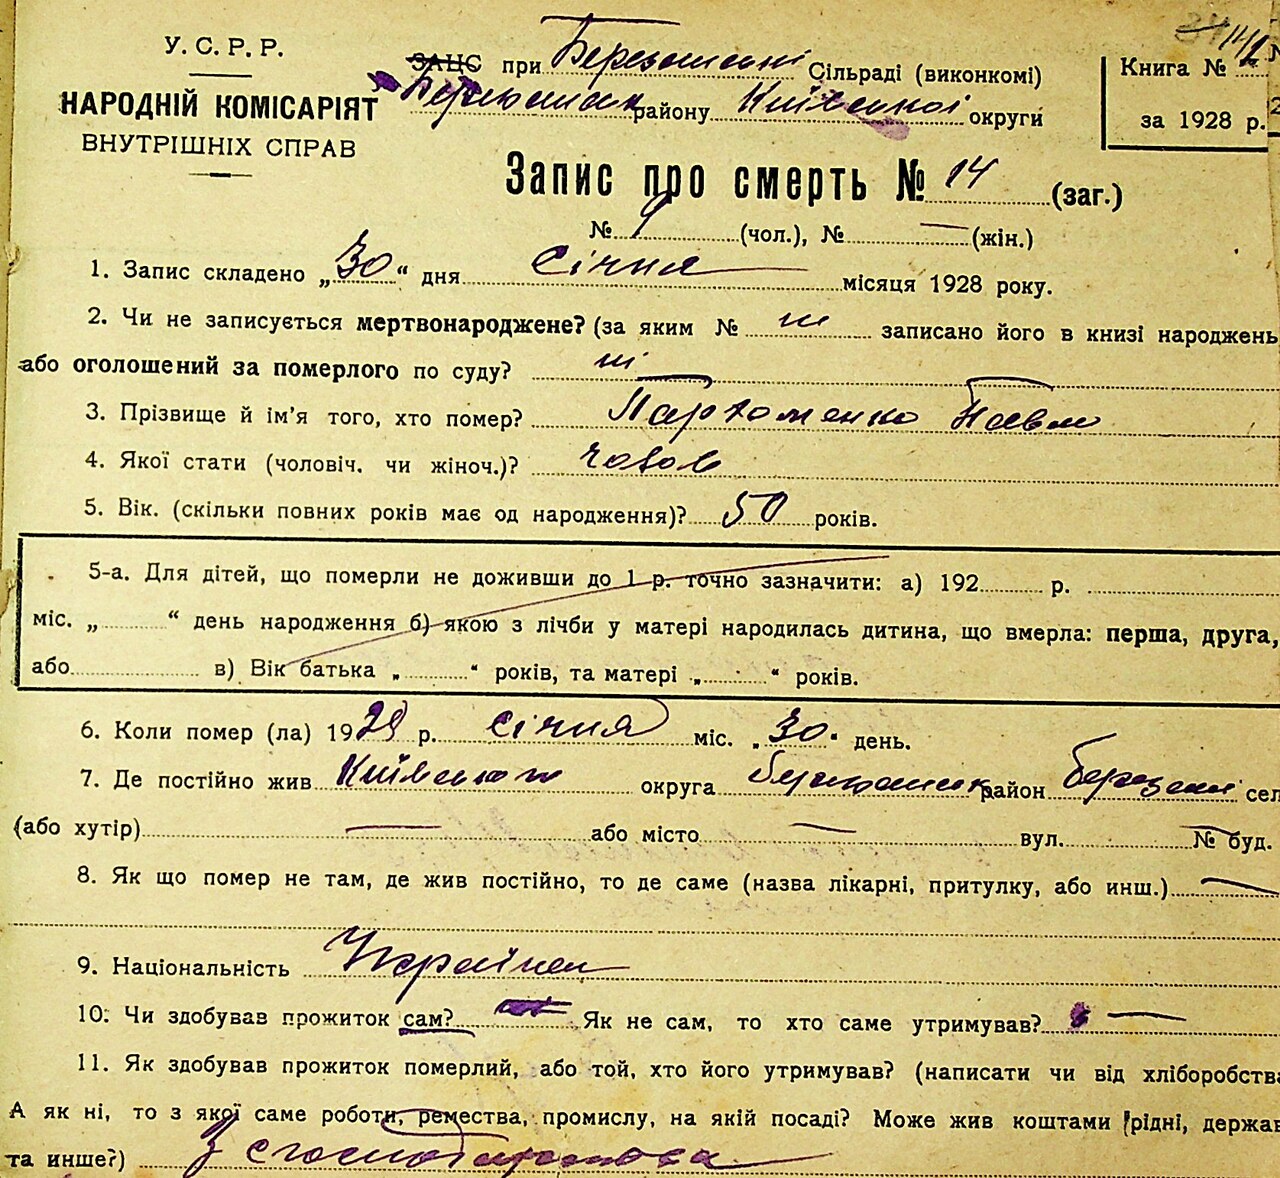 У. С. Р. Р.
НАРОДНІЙ КОМІСАРІЯТ
ВНУТРІШНІХ СПРАВ
ЗАЦС при Березанській Сільраді (виконкомі)
району Київської округи
Книга №
за 1928 р.
Запис про смерть № 14 (заг.)
№ 9 (чол.), № — (жін.)
1. Запис складено „30“ дня січня місяця 1928 року.
2. Чи не записується мертвонароджене? (за яким № ні записано його в книзі народжень
або оголошений за померлого по суду? ні
3. Прізвище й ім’я того, хто помер? Пархоменко Павло
4. Якої стати (чоловіч. чи жіноч.)? чолов
5. Вік. (скільки повних років має од народження)? 50 років.
5-а. Для дітей, що померли не доживши до 1 р. точно зазначити: а) 192 р.
міс. „ “ день народження б) якою з лічби у матері народилась дитина, що вмерла: перша, друга,
або в) Вік батька „ “ років, та матері „ “ років.
6. Коли помер (ла) 1928 р. січня міс. „30“ день.
7. Де постійно жив Київської округа район Березані сел
(або хутір) — або місто — вул. № буд.
8. Як що помер не там, де жив постійно, то де саме (назва лікарні, притулку, або инш.) —
9. Національність Українец
10. Чи здобував прожиток сам? Як не сам, то хто саме утримував? —
11. Як здобував прожиток померлий, або той, хто його утримував? (написати чи від хліборобства
А як ні, то з якої саме роботи, ремества, промислу, на якій посаді? Може жив коштами (рідні, держав
та инше?) З господарства